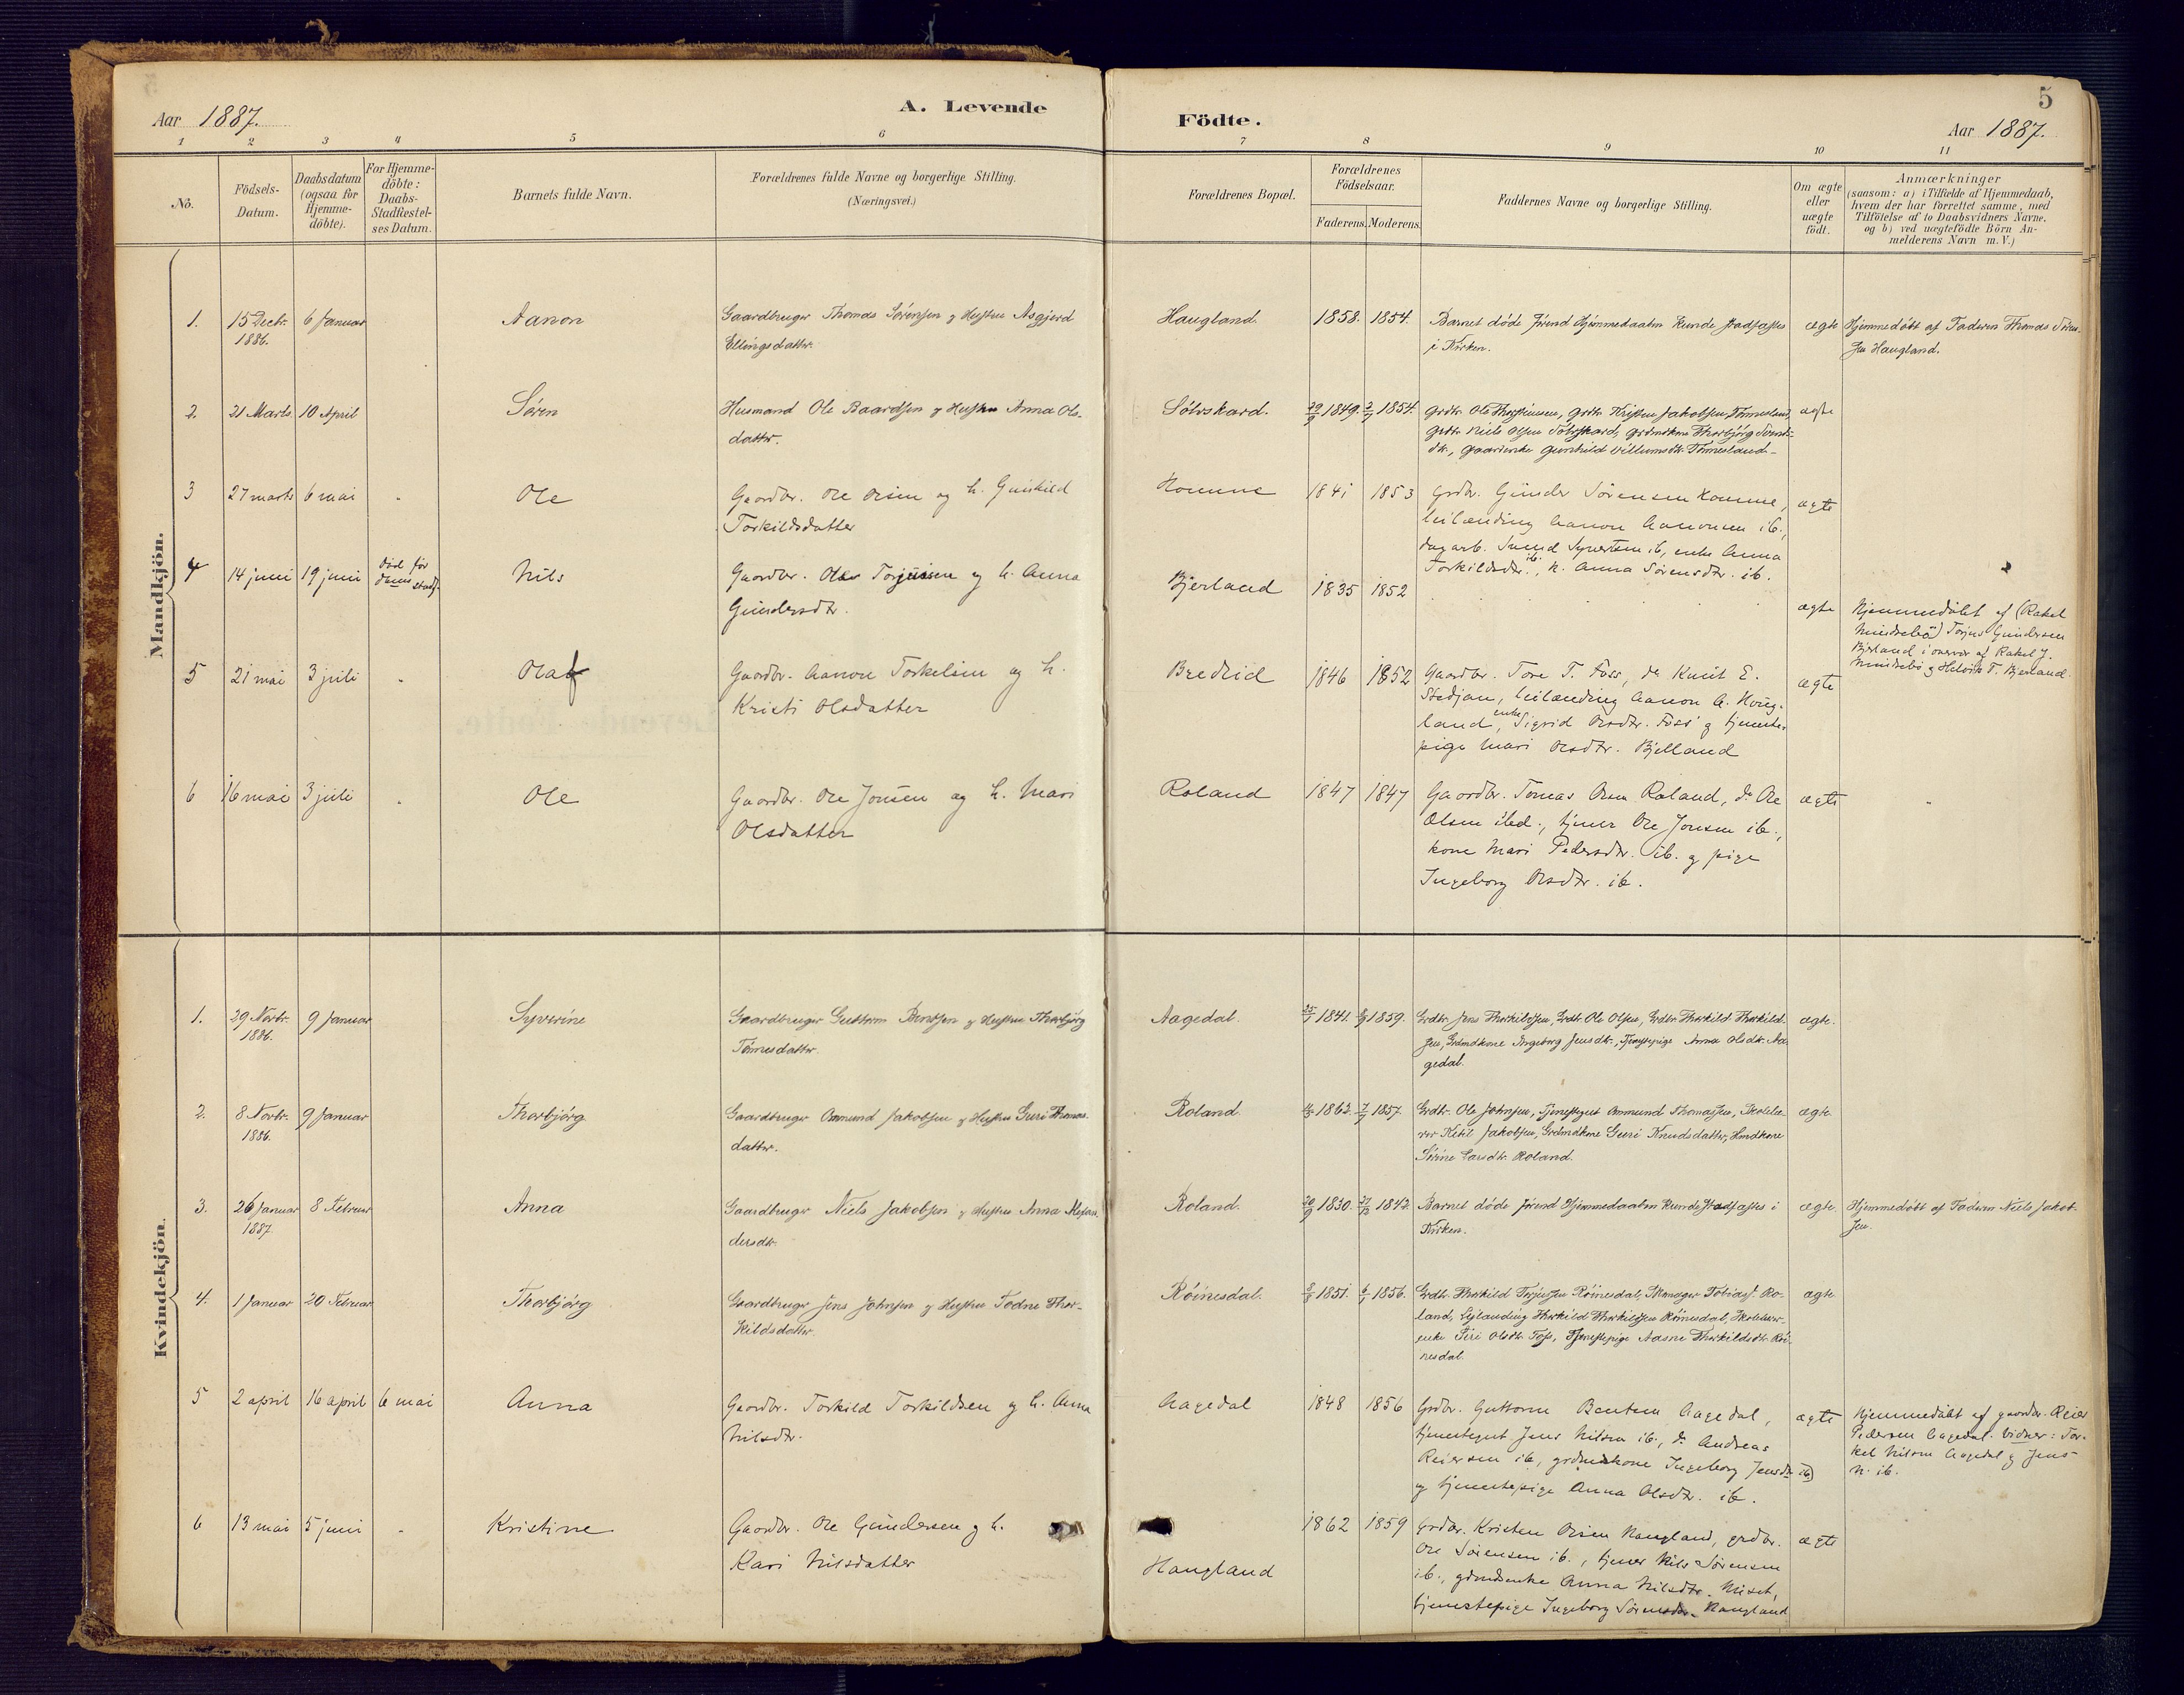 5
Aar 1887.
A. Levende
Födte.
Aar 1887.
1 2 3 4 5 6 7 8 9 10 11
No.
Födsels-
Datum.
Daabsdatum
(ogsaa for
Hjemme-
döbte).
For Hjemme-
döbte:
Daabs-
Stadfæstel-
ses Datum.
Barnets fulde Navn.
Forældrenes fulde Navne og borgerlige Stilling.
(Næringsvei.)
Forældrenes Bopæl.
Forældrenes
Födselsaar.
Faderens. Moderens.
Faddernes Navne og borgerlige Stilling.
Om ægte
eller
uægte
födt.
Anmærkninger
(saasom: a) i Tilfælde af Hjemmedaab,
hvem der har forrettet samme, med
Tilföielse af to Daabsvidners Navne,
og b) ved uægtefödte Börn An-
melderens Navn m. V.)
Mandkjön.
1.
15 Decbr.
1886.
6 Januar
Aanon
Gaardbruger Thomas Sørensen og Hustru Asgjerd
Ellingsdatter.
Haugland.
1858. 1854.
Barnet døde førend Hjemmedaaben kunde stadfæstes
i Kirken.
ægte
Hjemmedøbt af Faderen Thomas Søren-
sen Haugland.
2.
21 Marts
10 April
Søren
Husmand Ole Baardsen og Hustru Anna Ols-
datter.
Sølvskard.
1849. 1854.
Grdbr. Ole Thorstensen, Grdbr. Kristen Jakobsen Tønnesland,
Grdbr. Niels Olsen Sølvskard, Grdmdkone Thorbjørg
dtr., Gaardenke Gunhild Villumsdtr. Tønnesland.
ægte
3
27 marts
6 mai
Ole
Gaardbr. Ole Olsen og h. Gunhild
Torkildsdatter
Homme
1841 1853
Grdbr. Gunder Sørensen Homme,
leilænding Aanon Aanonsen ib.,
dagarb. Syvertsen ib, enke Anna
Torkildsdtr. ib., h. Anna Sørensdtr. ib.
ægte
4
14 juni
19 juni
død før
dens stadf.
Nils
Gaardbr. Olav Torjussen og h. Anna
Gundersdtr.
Bjerland
1835 1852
ægte
Hjemmedøbt af (Rakel
Mindrebø) Torjus Gundersen
Bjerland i overvær af Rakel J.
Mindrebø og Helvik T. Bjerland.
5
21 mai
3 juli
Olaf
Gaardbr. Aanon Torkelsen og h.
Kristi Olsdatter
Bredlid
1846 1852
Gaardbr. Tore T. Foss, do Knut E.
Stedjan, leilænding Aanon A. Houg-
land, enke Sigrid Olsdtr. Foss og tjeneste-
pige Mari Olsdtr. Bjelland
ægte
6
16 mai
3 juli
Ole
Gaardbr. Ole Jonsen og h. Mari
Olsdatter
Roland
1847 1847
Gaardbr. Tomas Olsen Roland, do Ole
Olsen ibd., tjener Ole Jonsen ib.,
kone Mari Pedersdtr. ib. og pige
Ingeborg Olsdtr. ib.
ægte
Kvindekjön.
1.
29 Novbr.
1886.
9 Januar
Syverine
Gaardbruger Guttorm Bentsen og Hustru Thorbjørg
Tønnesdatter.
Aagedal.
1841. 1859.
Grdbr. Jens Thorkildsen, Grdbr. Ole Olsen, Grdbr. Thorkild Thorkild-
sen, Grdmdkone Ingeborg Jensdtr., Tjenestepige Anna Olsdtr. Aa-
gedal.
ægte.
2.
8 Novbr.
1886.
9 Januar
Thorbjørg
Gaardbruger Ommund Jakobsen og Hustru Guri Thomas-
datter.
Roland.
1862. 1857.
Grdbr. Ole Johnsen, Tjenestegut Ommund Thomassen, Skolelæ-
rer Ketil Jakobsen, Grdmdkone Guri Knudsdatter, Hmdkone
Sørine Larsdtr. Roland.
ægte
3.
26 Januar
1887.
8 Februar
Anna
Gaardbruger Niels Jakobsen og Hustru Anna Alexan-
dersdtr.
Roland.
1830. 1842.
Barnet døde førend Hjemmedaaben kunde stadfæstes i
Kirken.
ægte.
Hjemmedøbt af Faderen Niels Jakob-
sen.
4.
1 Januar
20 Februar
Thorbjørg
Gaardbruger Jens Johnsen og Hustru Todne Thor-
kildsdatter.
Røinesdal.
1851. 1856.
Grdbr. Thorkild Terjussen Røinesdal, Skomager Tobias J. Ro-
land, Leilænding Thorkild Thorkildsen Røinesdal, Skolelærer-
enke Siri Olsdtr. Foss, Tjenestepige Aasne Thorkildsdtr. Røi-
nesdal.
ægte
5
2 april
16 april
6 mai
Anna
Gaardbr. Torkild Torkildsen og h. Anna
Nilsdtr.
Aagedal
1848 1856
Grdbr. Guttorm Bentsen Aagedal,
tjenestegut Jens Nilsen ib., do Andreas
Reiersen ib, grdmdkone Ingeborg Jensdtr. ib.
og tjenestepige Anna Olsdtr. ib.
ægte
Hjemmedøbt af gaardbr. Reier
Pedersen Aagedal. Vidner: Tor-
kel Nilsen Aagedal og Jens
N. ib.
6
13 mai
5 juni
Kristine
Gaardbr. Ole Gundersen og h.
Kari Nilsdatter
Haugland
1862 1859
Grdbr. Kristen Olsen Haugland, grdbr.
Ole Sørensen ib., tjener Nils Sørensen
ib., grdmdsenke Anna Nilsdtr. Miset,
tjenestepige Ingeborg Sørensdtr. Haugland
ægte